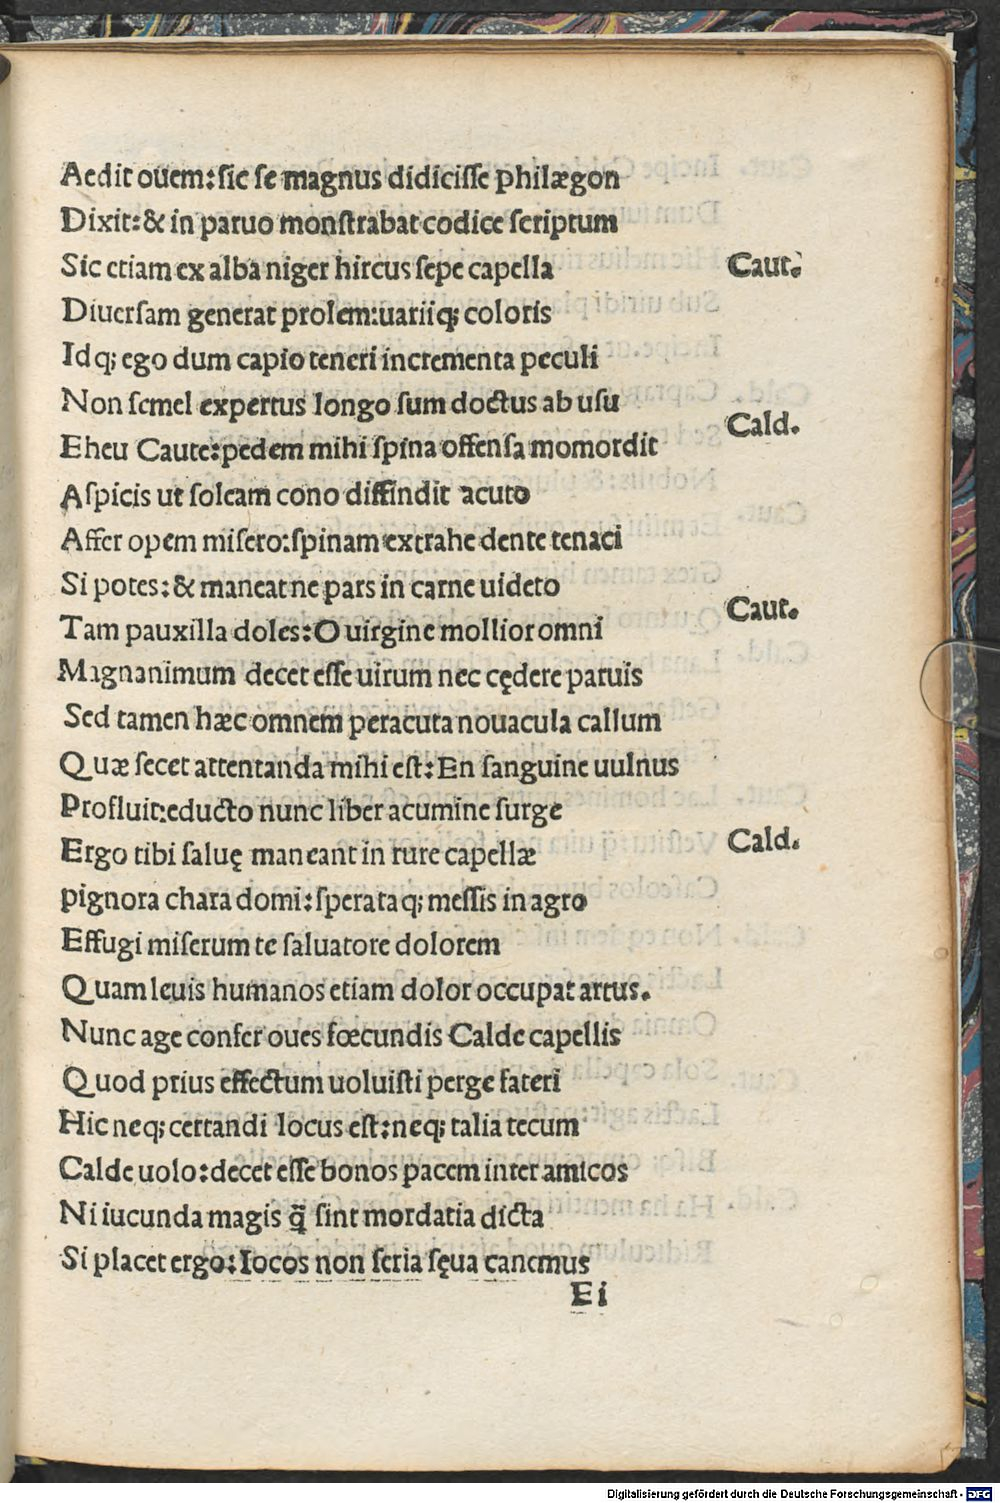 Aedit ouem: sic se magnus didicisse philægon
Dixit: & in paruo monstrabat codice scriptum
Sic etiam ex alba niger hircus sepe capella Caut.
Diuersam generat prolem: uariiq; coloris
Idq; ego dum capio teneri incrementa peculi
Non semel expertus longo sum doctus ab usu
Eheu Caute: pedem mihi spina offensa momordit Cald.
Aspicis ut soleam cono diffindit acuto
Affer opem misero: spinam extrahe dente tenaci
Si potes: & maneat ne pars in carne uideto
Tam pauxilla doles: O uirgine mollior omni Caut.
Magnanimum decet esse uirum nec cędere paruis
Sed tamen hæc omnem peracuta nouacula callum
Quæ secet attentanda mihi est: En sanguine uulnus
Profluit: educto nunc liber acumine surge
Ergo tibi saluę maneant in rure capellæ Cald.
pignora chara domi: sperataq; messis in agro
Effugi miserum te saluatore dolorem
Quam leuis humanos etiam dolor occupat artus.
Nunc age confer oues fœcundis Calde capellis
Quod prius effectum uoluisti perge fateri
Hic neq; certandi locus est: neq; talia tecum
Calde uolo: decet esse bonos pacem inter amicos
Ni iucunda magis q̃ sint mordatia dicta
Si placet ergo: Iocos non seria sęua canemus
Ei
Digitalisierung gefördert durch die Deutsche Forschungsgemeinschaft - DFG